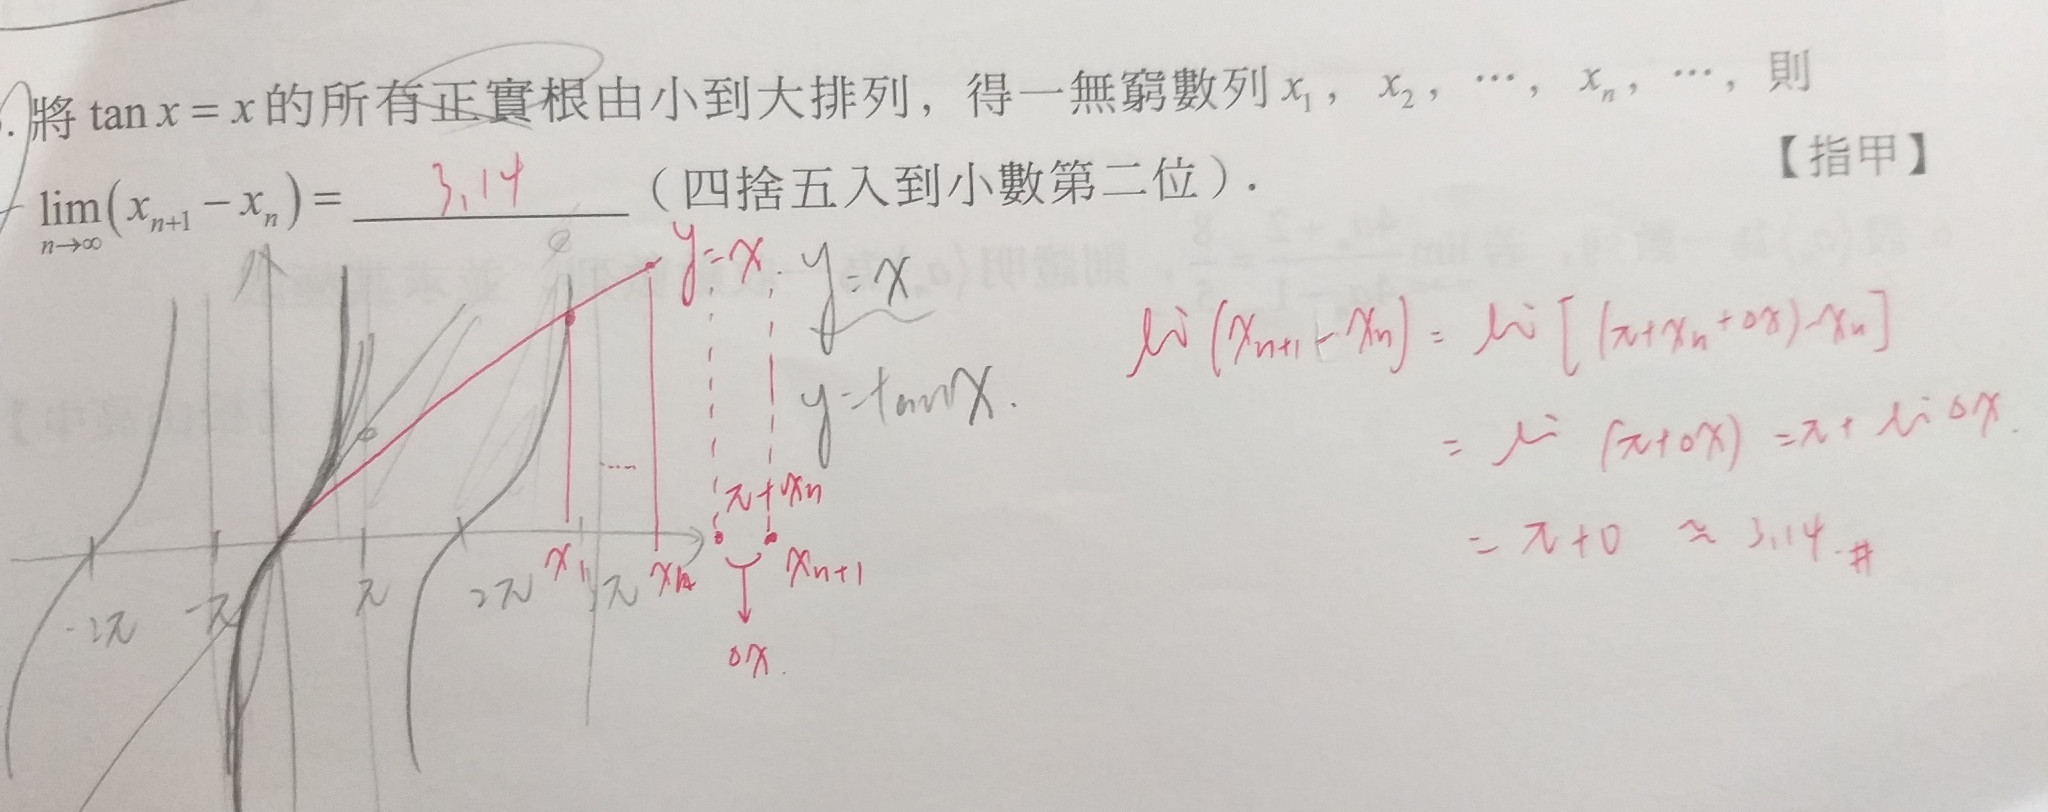 將 tan x = x 的所有正實根由小到大排列，得一無窮數列 x₁，x₂，⋯，xₙ，⋯，則
lim(xₙ₊₁ − xₙ) = 3.14 （四捨五入到小數第二位）. 【指甲】
n→∞
y=x
y=x
y=tanx.
-2π -π π 2π x₁ xₙ
π+xₙ
xₙ₊₁
△x.
li (xₙ₊₁ - xₙ) = li [(π+xₙ+△x)-xₙ]
= li (π+△x) = π+ li △x.
= π+0 ≈ 3.14.#